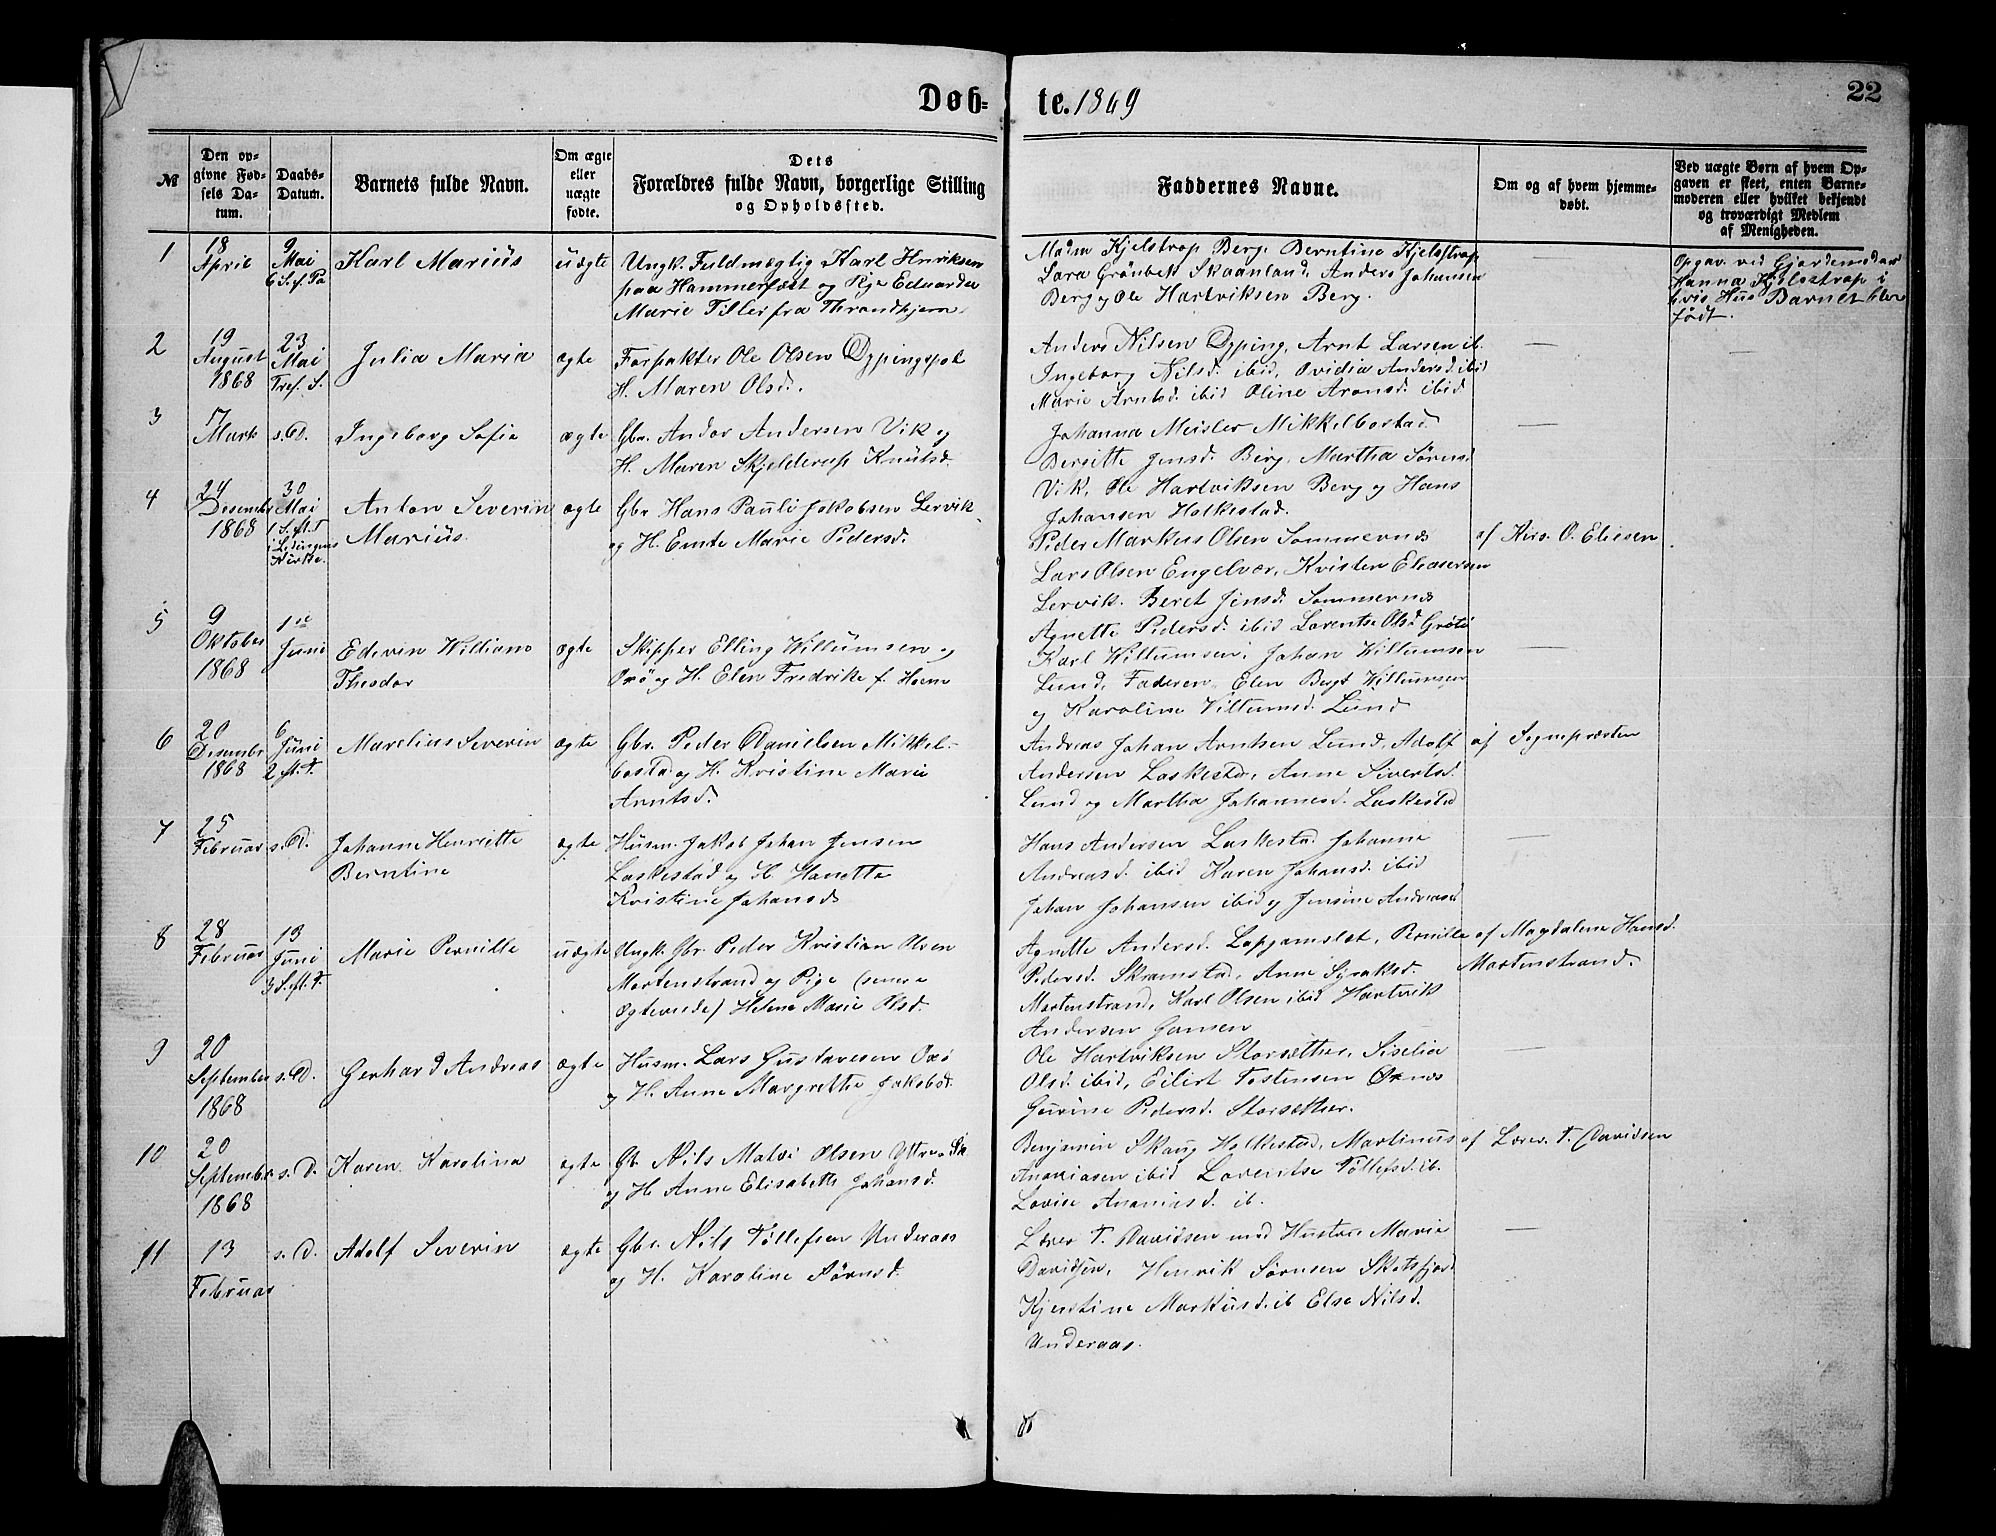 Døb-te. 1869
22
№
Den opgivne Fødsels Datum.
Daabs-Datum.
Barnets fulde Navn.
Om ægte eller uægte fødte.
Dets Forældres fulde Navn, borgerlige Stilling og Opholdssted.
Faddernes Navne.
Om og af hvem hjemmedøbt.
Ved uægte Børn af hvem Opgaven er skeet, enten Barnemoderen eller hvilket bekjendt og troværdigt Medlem af Menigheden.
1
18 April
9 Mai
6 S. f. Pa
Karl Marius
uægte
Ungk. Fuldmægtig Karl Henriksen
paa Hammerfest og Pige Edvarda
Marie Tiller fra Throndhjem
Madm Kjelstrop Berg. Berntine Kjelstrop
Lara Grönbek Skaanland, Anders Johansen
Berg og Ole Hartviksen Berg.
Opgav. ved Gjordemoder
Hanna Kjelstrop i
hvis Hus Barnet blev
født.
2
19
August
1868
23
Mai
Tref. S.
Julia Maria
ægte
Forpakter Ole Olsen Dypingspol
H. Maren Olsd.
Anders Nilsen Dyping, Arnt Larsen ib.
Ingeborg Nilsd. ibid, Ovidia Andersd. ibid
Marie Arntsd. ibid Oline Aronsd. ibid
3
17
Marts
s. D.
Ingeborg Sofie
ægte
Gbr. Andor Andersen Vik og
H. Maren Skjelderup Knutsd.
Johanna Meisler Mikkelbostad
Bergitte Jensd. Berg, Martha Sörens.
Vik, Ole Hartviksen Berg og Hans
Johansen Holkestad.
4
24
Desember
1868
30
Mai
1 S. ft. T
i Lødingens
Kirke.
Anton Severin
Marius
ægte
Gbr Hans Pauli Jakobsen Lervik
og H. Emte Marie Pedersd.
Peder Markus Olsen Sommernes
Lars Olsen Engelvær, Kristen Eliasersen
Lervik. Beret Jensd. Sommernes
Agnette Pedersd. ibid Lorentse Olsd Grötö
af Kirs. O. Eliesen
5
9
Oktober
1868
1ste
Juni
Edevin Williano
Theodor
ægte
Skipper Elling Willumsen og
Oxö og H. Elen Fredrike f. Hveem
Karl Willumsen, Johan Willumsen
Lund, Faderen, Elen Bergt Willumsen
og Karoline Villumsd. Lund
6
20
Desember
1868
6
Juni
2 ft. T.
Marelius Severin
ægte
Gbr. Peder Danielsen Mikkel-
bostad og H. Kristine Marie
Arntsd.
Andreas Johan Arntsen Lund, Adolf
Andersen Laskestad, Anne Sivertsd.
Lund og Martha Johannesd. Laskestad
af Sognepræsten
7
25
Februar
s. D.
Johanne Henriette
Berntine
ægte
Husm. Jakob Johan Jensen
Laskestad og H. Hanetta
Kristine Johansd
Hans Andersen Laskestad Johanne
Andreasd. ibid Karen Johansd. ibid
Johan Johansen ibid og Jensine Andreasd
8
28
Februar
13
Juni
3 S. ft. T.
Marie Pernille
uægte
Ungk. Gbr. Peder Kristian Olsen
Mortenstrand og Pige (senere
Ægteviede) Helene Marie Olsd.
Agnette Andersd. Pernille
Pedersd. Skramstad, Anne Syraksd.
Mortenstrand, Karl Olsen ibid Hartvik
Andersen Gansen
af Magdalene Hansd.
Mortenstrand.
9
20
September
1868
s. D.
Gerhard Andreas
ægte
Husm. Lars Gustavesen Oxö
og H. Anne Margrethe Jakobsd.
Ole Hartviksen Storsæther, Siselia
Olsd. ibid, Eilert Tostensen Öxnes
Gurine Pedersd. Storsæther.
10
20
September
1868
s. D.
Karen Karolina
ægte
Gb. Nils Matvi Olsen Yttre Sk
og H. Anne Elisabeth Johansd.
Benjamin Skaug Holkestad, Martinus
Ananiasen ibid Lorentse Tollefsd. ib.
Lovise Ananiasd. ib.
af Lærer T. Davidsen
11
13
Februar
s. D.
Adolf Severin
ægte
Gbr. Nils Tollefsen Underaas
og H. Karoline Sörensd.
Lærer T. Davidsen med Hustru Marie
Davidsen, Henrik Sörnsen Skotsfjord
Kjerstine Markusd. ib Else Nilsd.
Underaas.